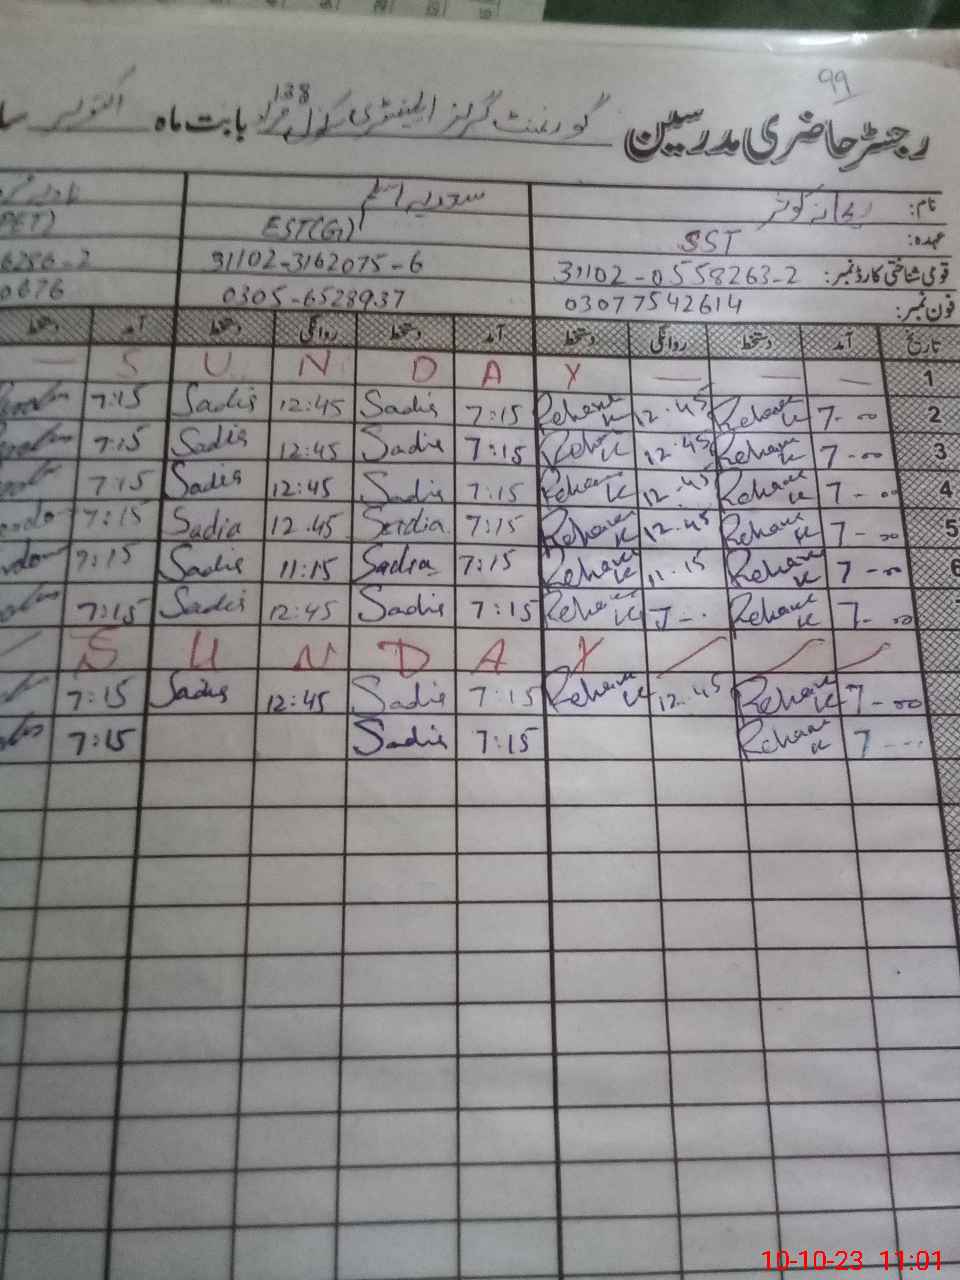 99
رجسٹر حاضری مدرسین گورنمنٹ گرلز ایلیمنٹری سکول 138 مراد بابت ماہ اکتوبر
نام: ریحانہ کوثر سعدیہ اسلم
عہدہ: SST EST(G) PET)
قومی شناختی کارڈ نمبر: 31102-0558263-2 31102-3162075-6 6286-2
فون نمبر: 03077542614 0305-6528937 0676
تاریخ آمد دستخط روانگی دستخط آمد دستخط روانگی دستخط آمد دستخط
1 — — — Y A D N U S —
2 7-00 Rehana K 12.45 Rehana K 7:15 Sadia 12:45 Sadia 7:15
3 7-00 Rehana K 12.45 Reha K 7:15 Sadia 12:45 Sadia 7:15
4 7-00 Rehana K 12.45 Rehana K 7:15 Sadia 12:45 Sadia 7:15
5 7-00 Rehana K 12.45 Rehana K 7:15 Sadia 12.45 Sadia 7:15
6 7-00 Rehana K 11.15 Rehana K 7:15 Sadia 11:15 Sadia 7:15
7-00 Rehana K 7-.. Rehana K 7:15 Sadia 12:45 Sadia 7:15
Y A D N U S
7-00 Rehana K 12.45 Rehana K 7:15 Sadia 12:45 Sadia 7:15
7--- Rehana K 7:15 Sadia 7:15
10-10-23 11:01